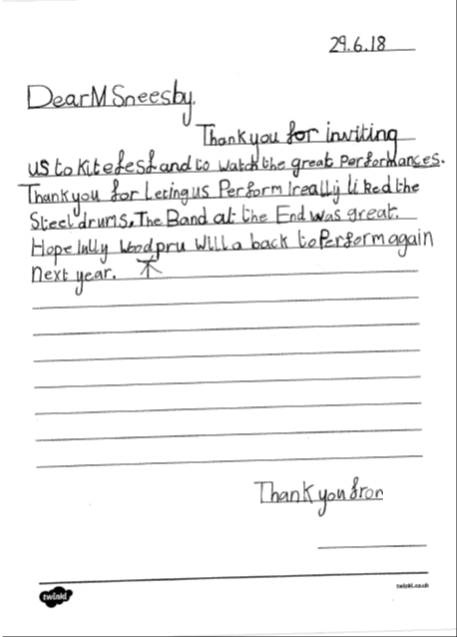 29.6.18
Dear M Sneesby,
Thank you for inviting
us to Kitefest and to watch the great Performances.
Thank you for Leting us Perform I really liked the
Steel drums, The Band at the End was great.
Hopefully Woodpru Will a back to Perform again
Next year.
Thank you fron
twinkl
twinkl.co.uk